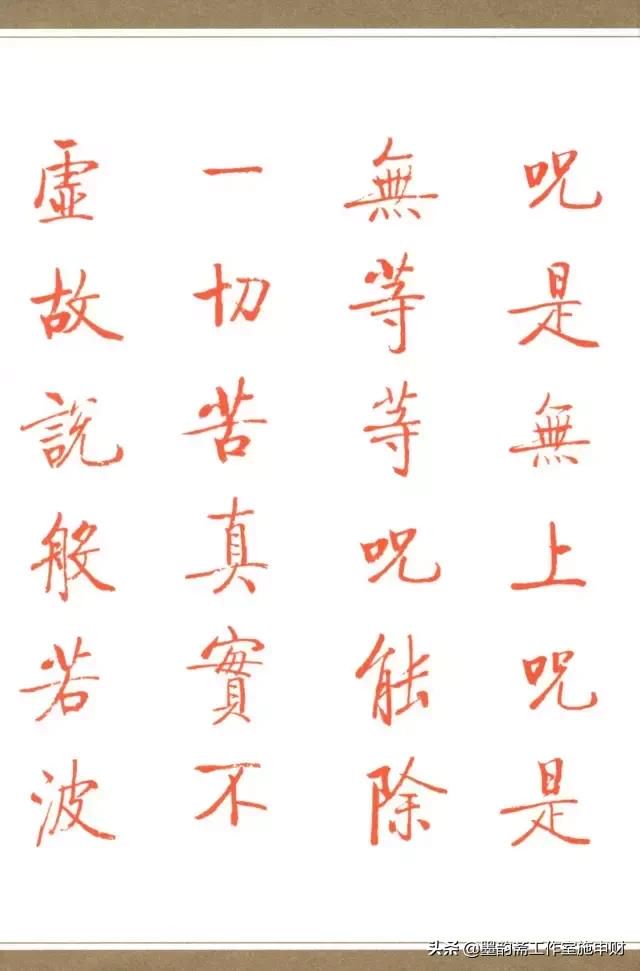 呪是無上呪是
無等等呪能除
一切苦真實不
虛故説般若波
头条@墨韵斋工作室施申财